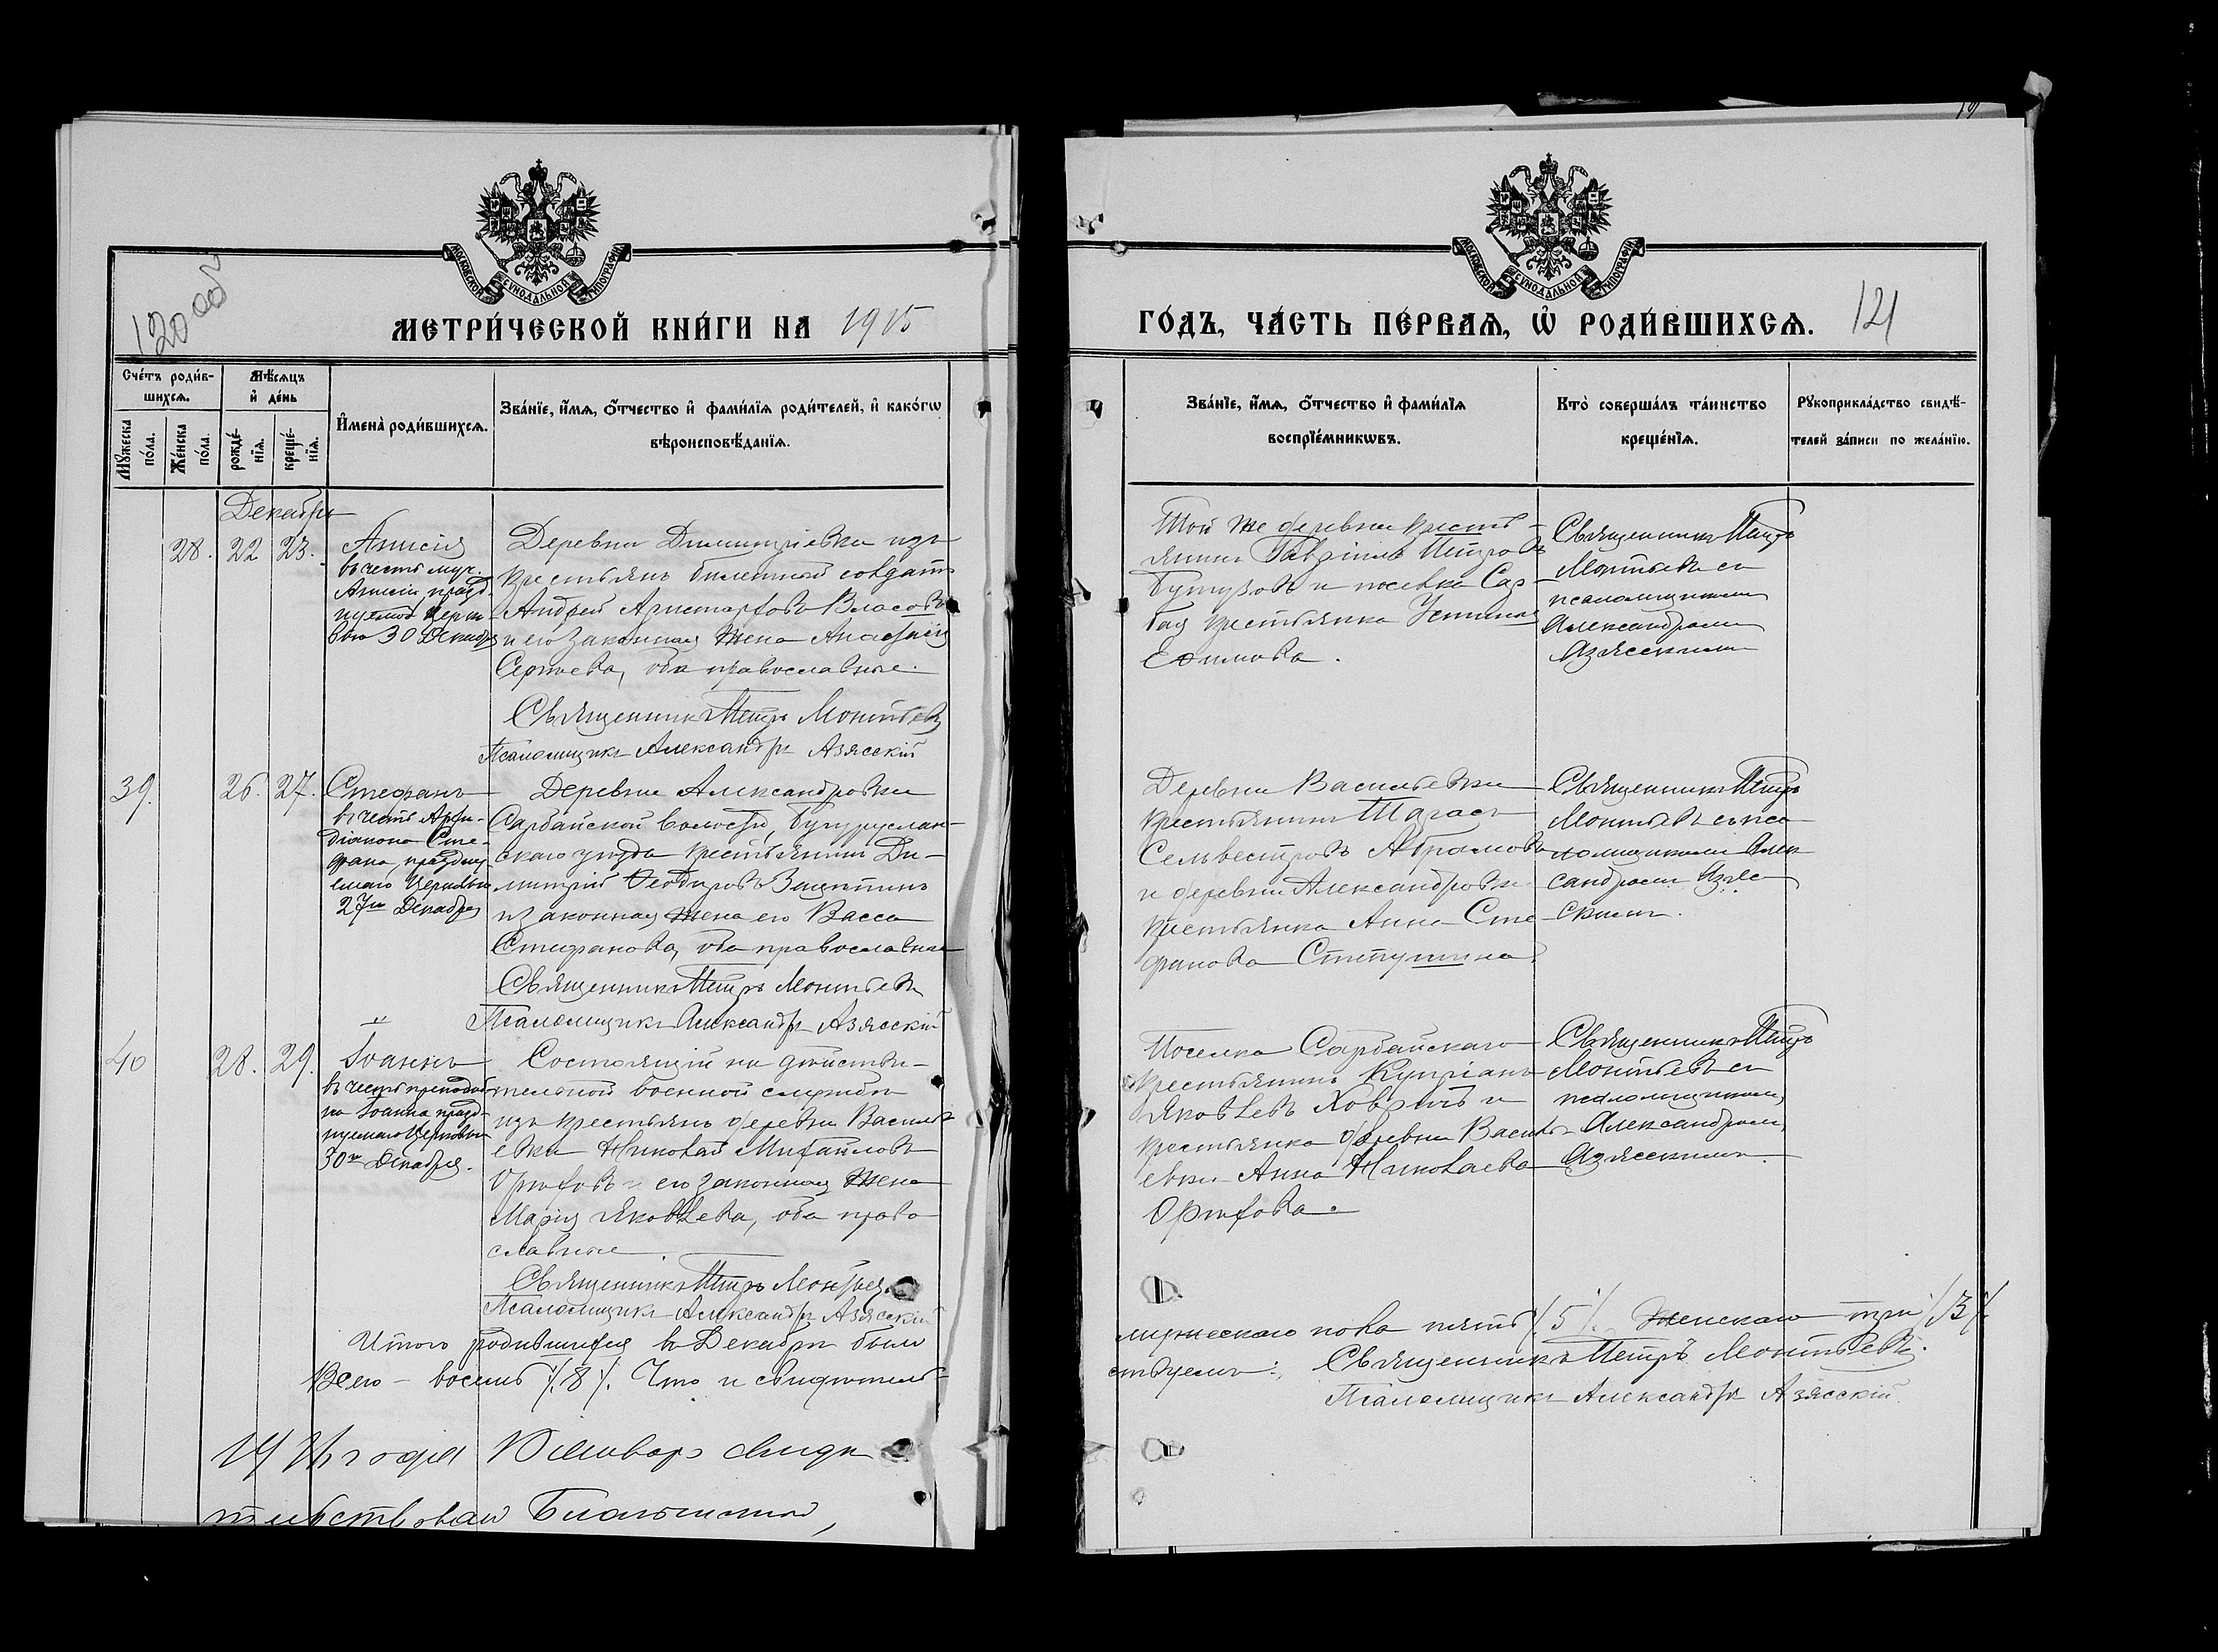 120 об
МОСКОВСКОЙ СѴНОДАЛЬНОЙ ТИПОГРАФІИ
МЕТРИ́ЧЕСКОЙ КНИ́ГИ НА 1915
Счéтъ роди́в-
шихсѧ.
Мѣ́сѧцъ
и҆ де́нь
Мꙋ́жеска
по́ла.
Же́нска
по́ла.
рожде́-
нїѧ.
креще́-
нїѧ.
И҆мена̀ роди́вшихсѧ.
Зва́нїе, и҆́мѧ, ѻ҆́тчество и҆ фами́лїѧ роди́телей, и҆ како́гѡ
вѣроисповѣ́данїѧ.
Декабрь
28. 22 23.
Анисія
въ честь муч.
Анисіи, празд-
нуемой Церко-
вью 30 Декабря
Деревни Димитріевки изъ
крестьянъ билетный солдатъ
Андрей Аристарховъ Власовъ
и его законная жена Анастасія
Сергиева, оба православные.
Священникъ Петръ Леонтьевъ
Псаломщикъ Александръ Азясскій
39. 26. 27.
Стефанъ
въ честь Архи-
діакона Сте-
фана, праздну-
емаго Церковью
27го Декабря
Деревни Александровки
Сарбайской волости, Бугуруслан-
скаго уѣзда крестьянинъ Ди-
митрій Ѳеодоровъ
и законная жена его Васса
Стефанова, оба православные
Священникъ Петръ Леонтьевъ
Псаломщикъ Александръ Азясскій
40 28. 29.
Іоаннъ
въ честь преподоб-
на Іоанна празд-
нуемаго Церковью
30го Декабря.
Состоящій на дѣйстви-
тельной военной службѣ
изъ крестьянъ деревни Василь-
евки Николай Михаиловъ
Орѣховъ и его законная жена
Марія Яковлева, оба право
славные.
Священникъ Петръ Леонтьевъ
Псаломщикъ Александръ Азясскій
Итого родившихся въ Декабрѣ было
Всего – восемь /.8/. Что и свидѣтель-
года Января
МОСКОВСКОЙ СѴНОДАЛЬНОЙ ТИПОГРАФІИ
ГО́ДЪ, ЧА́СТЬ ПЕ́РВАѦ, Ѡ҆ РОДИ́ВШИХСѦ. 121
Зва́нїе, и҆́мѧ, ѻ҆́тчество и҆ фами́лїѧ
воспрїе́мникѡвъ.
Кто̀ соверша́лъ та́инство
креще́нїѧ.
Рꙋкоприкла́дство свидѣ́-
телей за́писи по жела́нїю.
Той же деревни кресть-
янинъ Гавріилъ Петровъ
и поселка Сар-
бая крестьянка Устинія
Ефимова.
Священникъ Петръ
Леонтьевъ съ
псаломщикомъ
Александромъ
Азясскимъ
Деревни Васильевки
крестьянинъ Тарасъ
Сельвестровъ Абрамовъ
и деревни Александровки
крестьянка Анна Сте-
фанова
Священникъ Петръ
Леонтьевъ съ пса
ломщикомъ Алек
сандромъ Азяс
скимъ.
Поселка Сарбайскаго
крестьянинъ Купріанъ
Яковлевъ Ховринъ и
крестьянка деревни Василь-
евки Анна Николаева
Орѣхова.
Священникъ Петръ
Леонтьевъ съ
псаломщикомъ
Александромъ
Азясскимъ.
мужескаго пола пять /.5/. Женскаго три /.3/.
ствуемъ: Священникъ Петръ Леонтьевъ.
Псаломщикъ Александръ Азясскій.